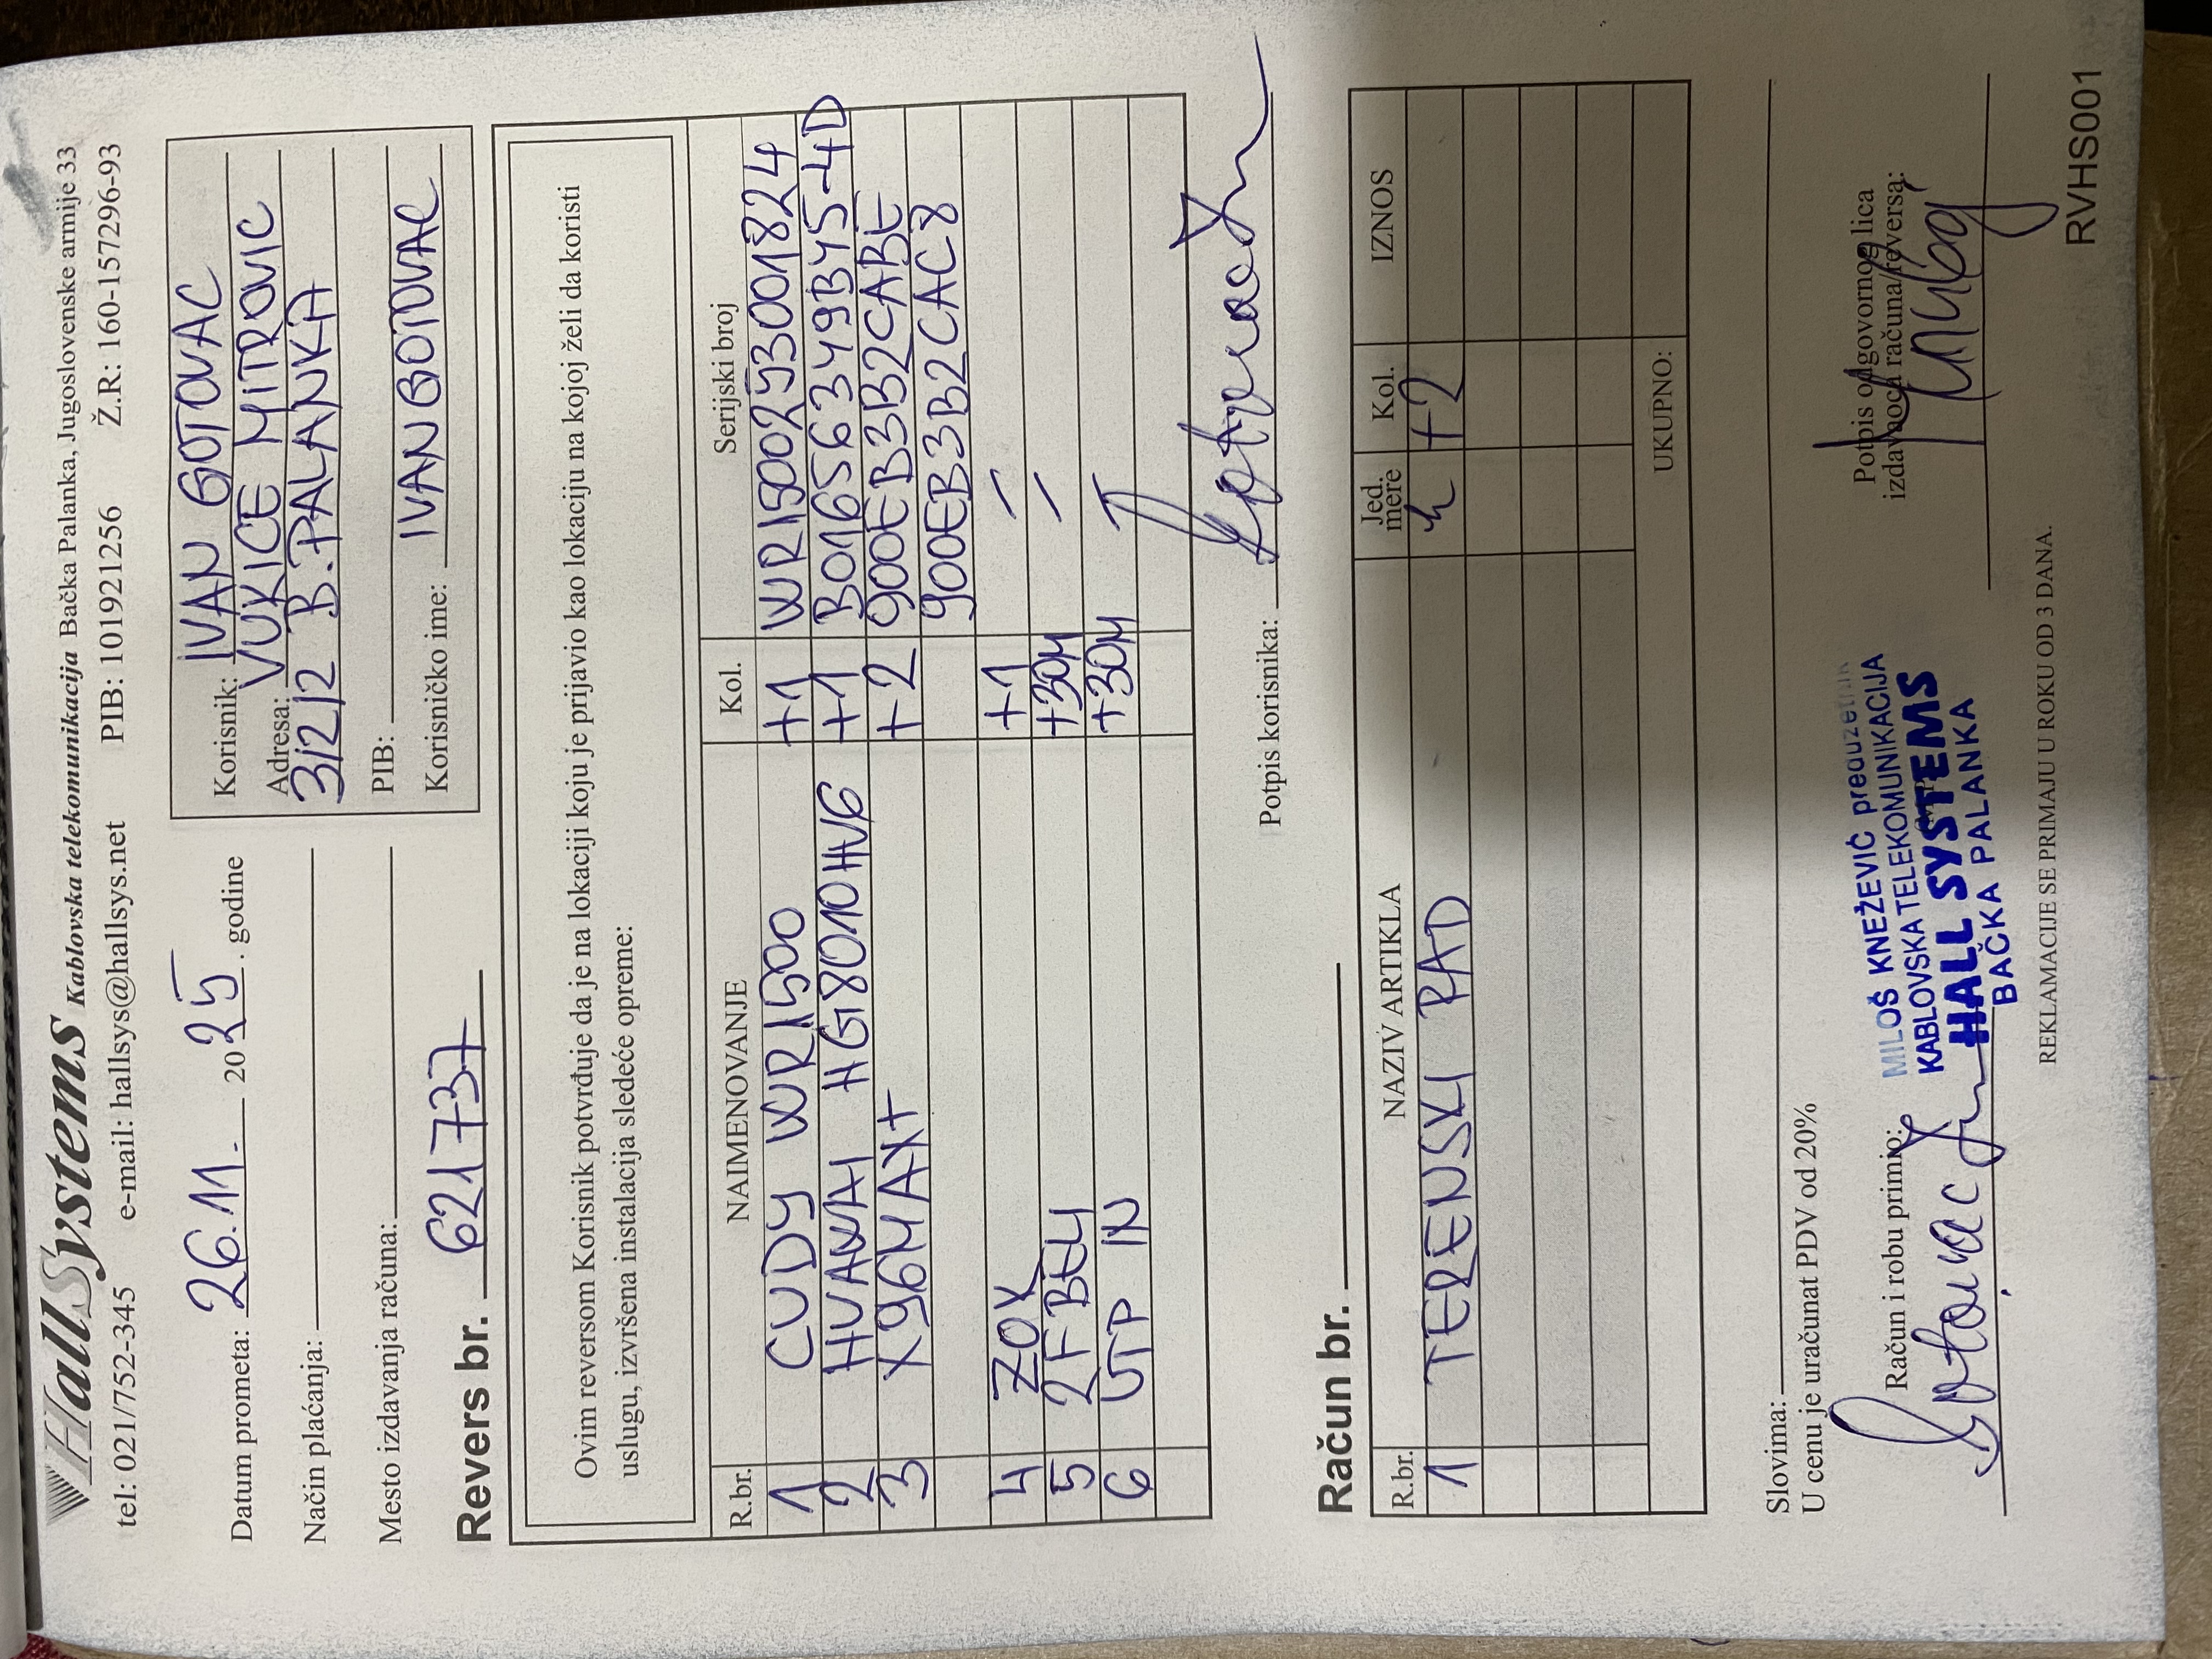 HallSystems Kablovska telekomunikacija Bačka Palanka, Jugoslovenske armije 33
tel: 021/752-345 e-mail: hallsys@hallsys.net PIB: 101921256 Ž.R: 160-157296-93
Datum prometa: 26.11. 2025. godine
Način plaćanja:
Mesto izdavanja računa:
Korisnik: IVAN GOTOVAC
Adresa: VUKICE MITROVIC
3/2/2 B.PALANKA
PIB:
Korisničko ime: IVANGOTOVAC
Revers br. 621737
Ovim reversom Korisnik potvrđuje da je na lokaciji koju je prijavio kao lokaciju na kojoj želi da koristi
uslugu, izvršena instalacija sledeće opreme:
R.br. NAIMENOVANJE Kol. Serijski broj
1 CUDY WR1500 +1 WR1500253001824
2 HUAWAI HG8010HV6 +1 B01656349B45-4D
3 X96MAX+ +2 900EB3B2CABE
900EB3B2CAC8
4 ZOK +1 –
5 2FBELI +30M –
6 UTP IN +30M –
Potpis korisnika:
Račun br.
R.br. NAZIV ARTIKLA Jed. mere Kol. IZNOS
1 TERENSKI RAD h +2
UKUPNO:
Slovima:
U cenu je uračunat PDV od 20%
Račun i robu primio:
Gotovac
MILOŠ KNEŽEVIĆ preduzetnik
KABLOVSKA TELEKOMUNIKACIJA
HALL SYSTEMS
BAČKA PALANKA
Potpis odgovornog lica
izdavaoca računa/reversa:
REKLAMACIJE SE PRIMAJU U ROKU OD 3 DANA.
RVHS001